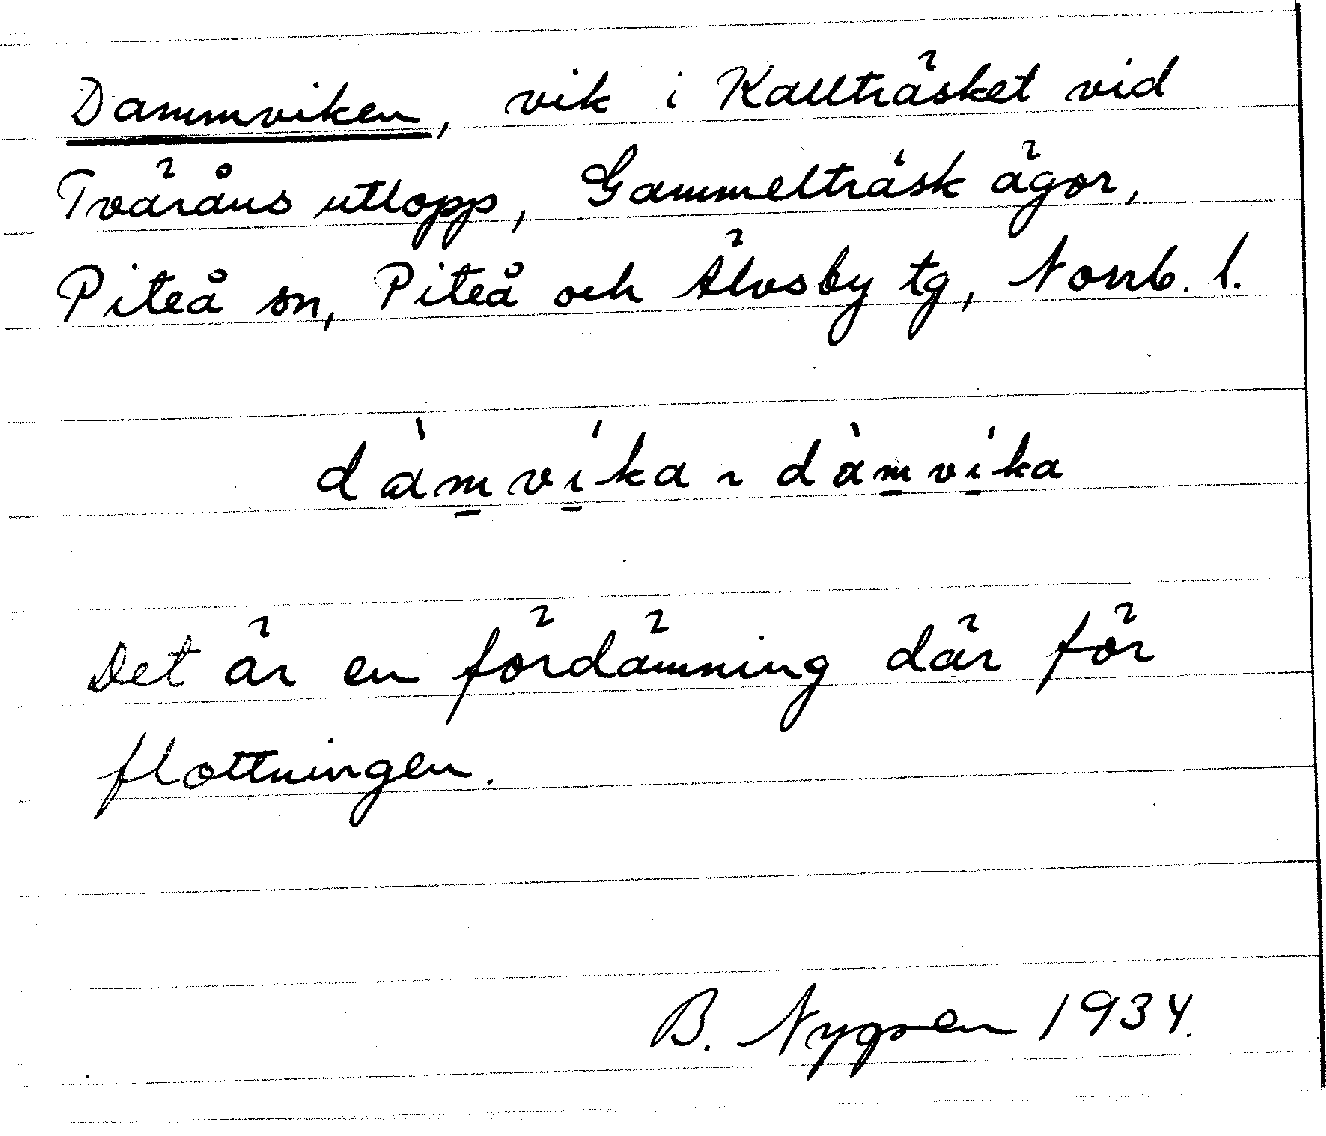 Dammviken, vik i Kallträsket vid
Tväråns utlopp, Gammelträsk ägor,
Piteå sn, Piteå och Älvsby tg, Norrb. l.
dàmví̱ka ~ dàmví̱ka
Det är en fördämning där för
flottningen.
B. Nygren 1934.